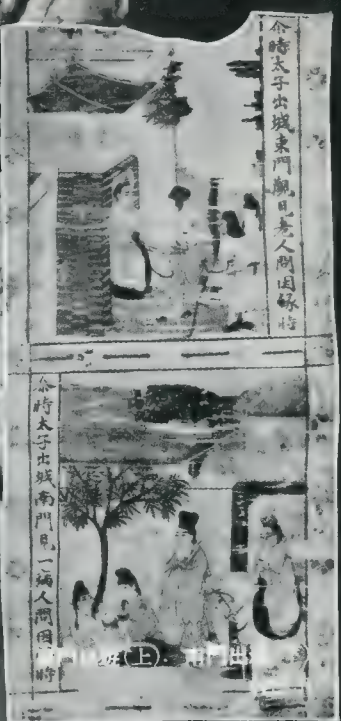 尒時太子出城東門觀見老人問因緣時
尒時太子出城南門見一病人問因緣時